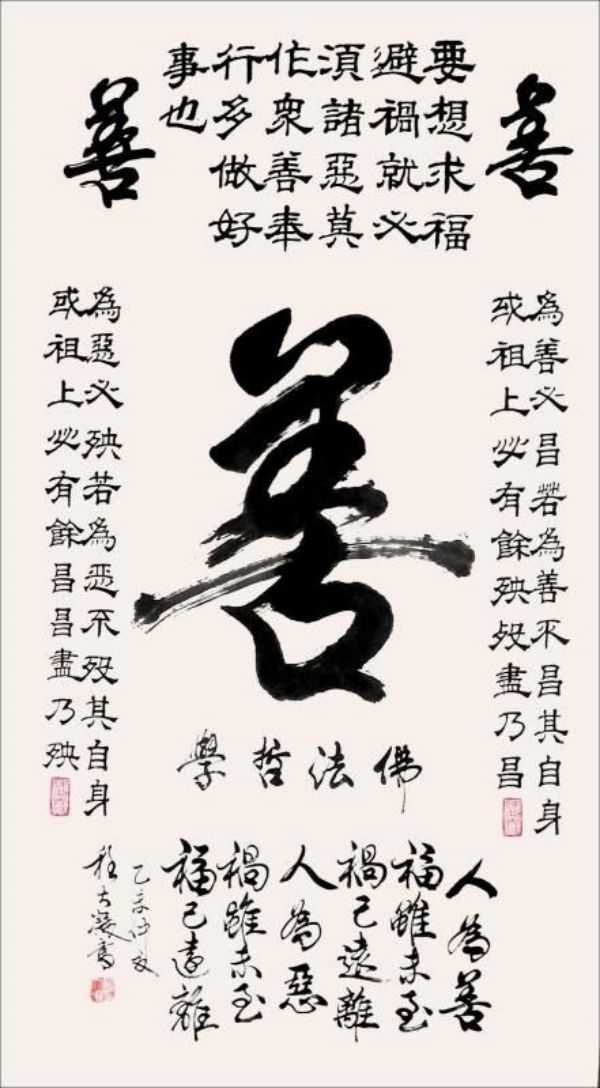 善
要想求福
避禍就必
須諸惡莫
作衆善奉
行多做好
事也
善
為善必昌若為善不昌其自身
或祖上必有餘殃殁盡乃昌
善
為惡必殃若為恶不殁其自身
或祖上必有餘昌昌盡乃殃
佛法哲學
人為善
福雖未至
禍已遠離
人為惡
禍雖未至
福已遠離